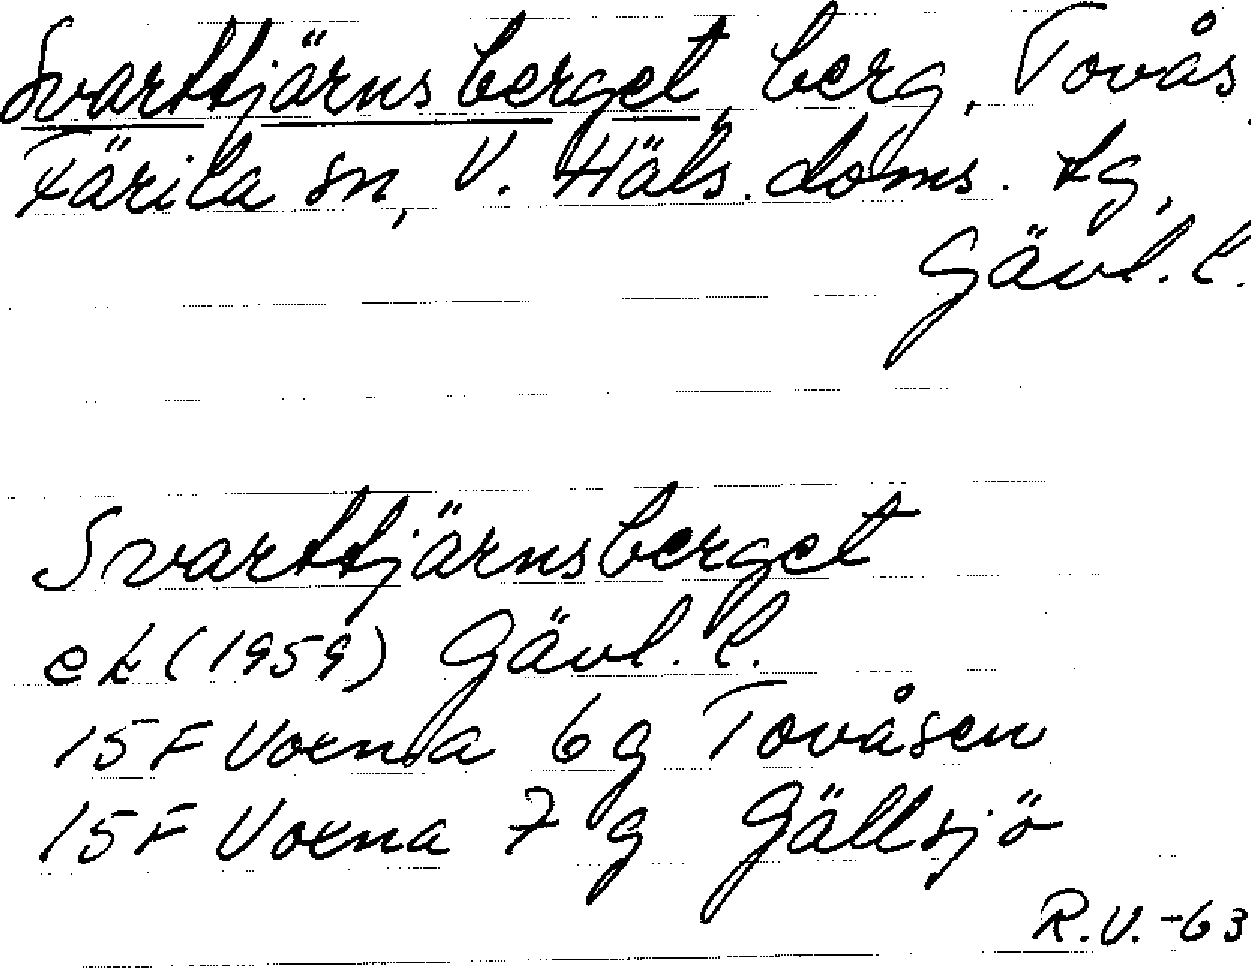 Svarttjärnsberget, berg, Tovås,
Färila sn, V. Häls. doms. tg,
Gävl. l.
Svarttjärnsberget
ek (1959) Gävl. l.
15 F Voxna 6 g Tovåsen
15 F Voxna 7 g Gällsjö
R.V. -63